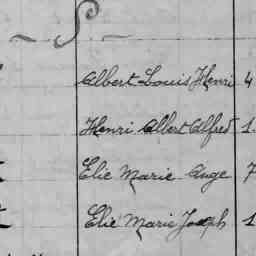 - S -
Albert Louis Henri 4
Henri Albert Alfred 1
Elie Marie Ange 7
Elie Marie Joseph 1